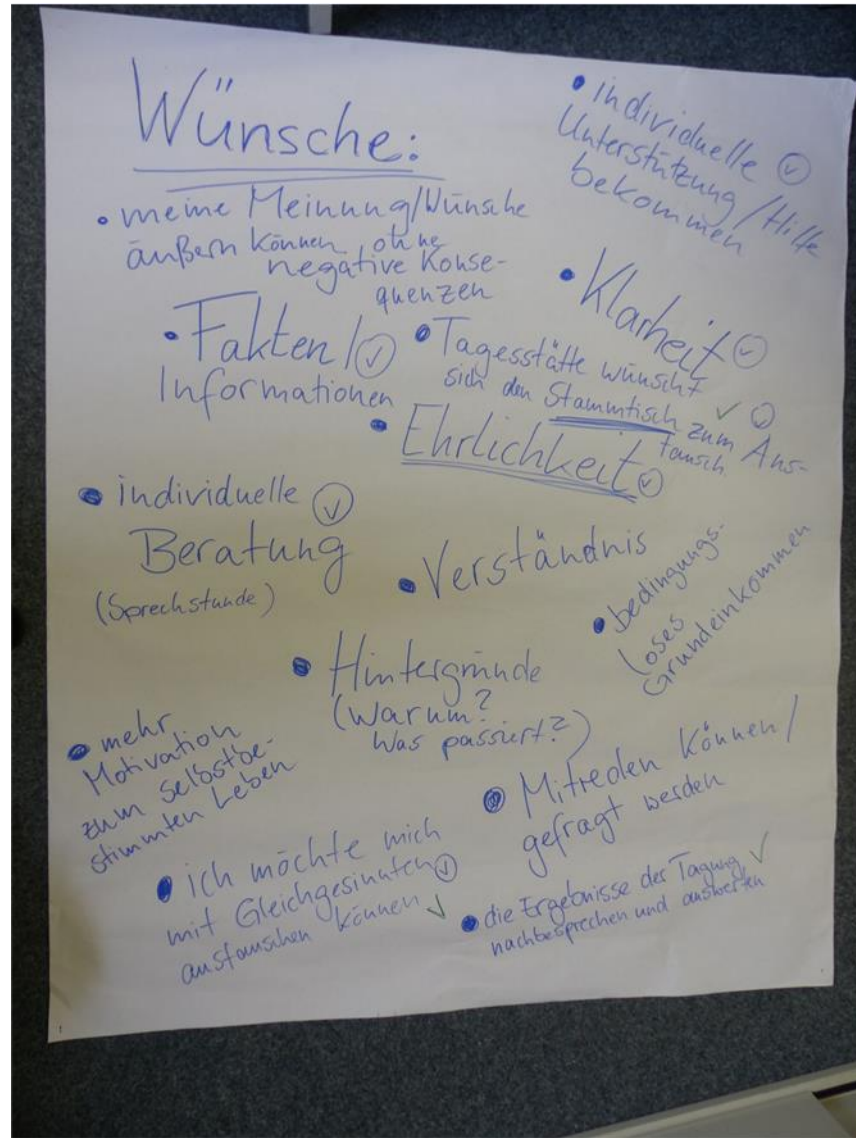 Wünsche:
• individuelle ✓
Unterstützung / Hilfe
bekommen
• meine Meinung/Wünsche
äußern können, ohne
negative Konse-
quenzen
• Klarheit ✓
• Fakten / ✓
Informationen
• Tagesstätte wünscht
sich den Stammtisch ✓ ✓ zum Aus-
tausch
• Ehrlichkeit ✓
• individuelle ✓
Beratung
(Sprechstunde)
• Verständnis
• bedingungs-
loses
Grundeinkommen
• Hintergründe
(Warum?
Was passiert?)
• mehr
Motivation
zum selbstbe-
stimmten Leben
• Mitreden können /
gefragt werden
• ich möchte mich
mit Gleichgesinnten ✓
austauschen können ✓
• die Ergebnisse der Tagung ✓
nachbesprechen und auswerten